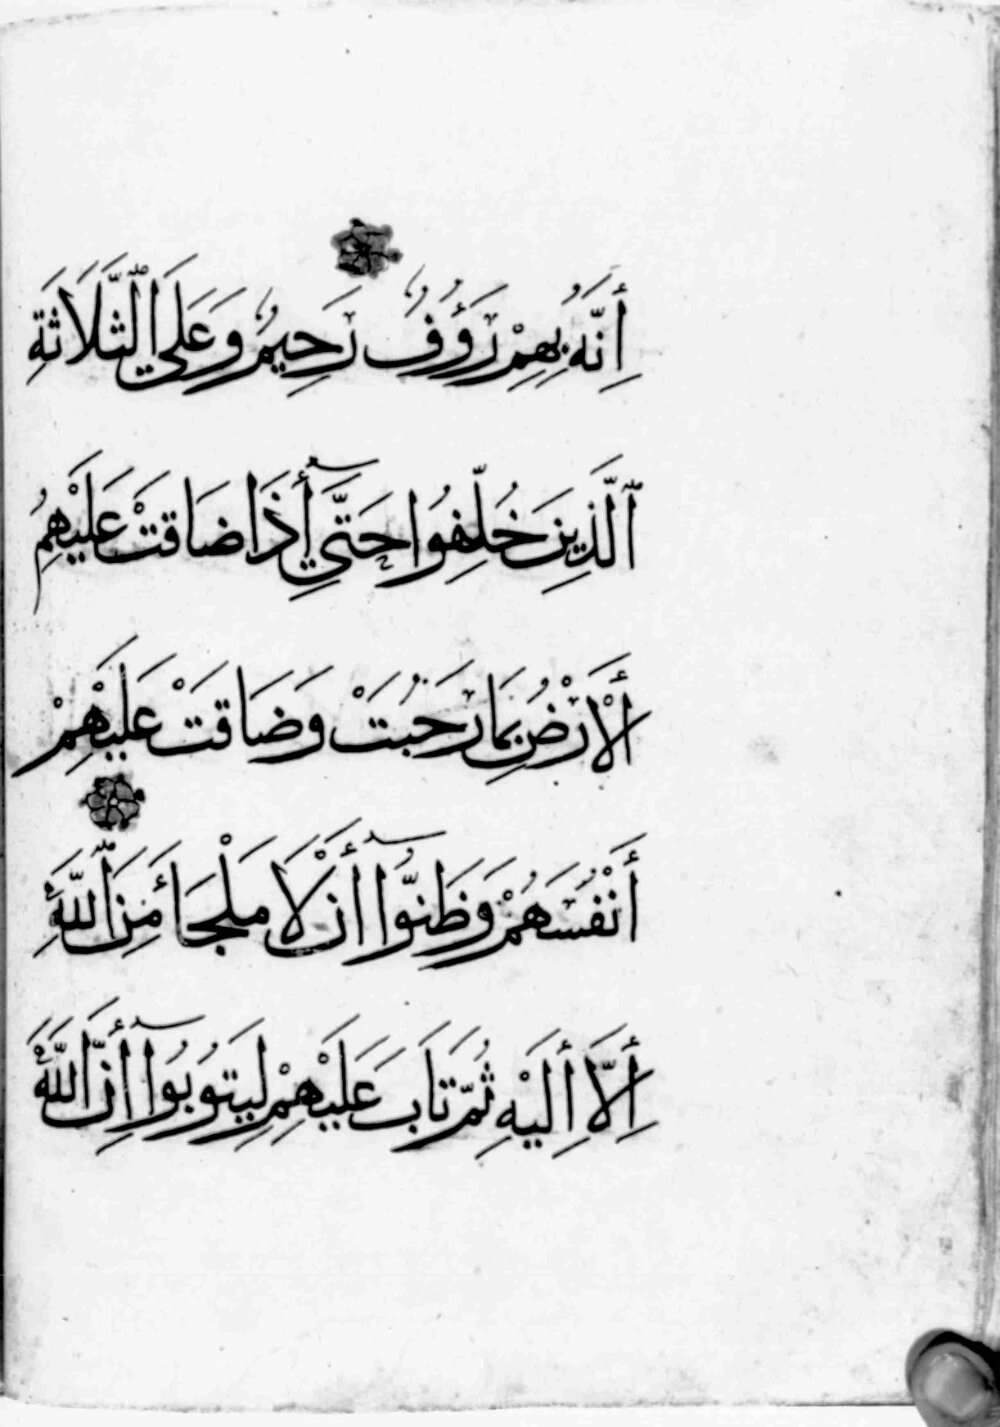 إِنَّهُ بِهِمْ رَؤُفٌ رَحِيمٌ وَعَلَى الثَّلَاثَةِ
الَّذِينَ خُلِّفُوا حَتَّىٓ إِذَا ضَاقَتْ عَلَيْهِمُ
الْأَرْضُ بِمَا رَحُبَتْ وَضَاقَتْ عَلَيْهِمْ
أَنْفُسُهُمْ وَظَنُّوٓا أَنْ لَا مَلْجَأَ مِنَ اللَّهِ
إِلَّا إِلَيْهِ ثُمَّ تَابَ عَلَيْهِمْ لِيَتُوبُوٓا إِنَّ اللَّهَ